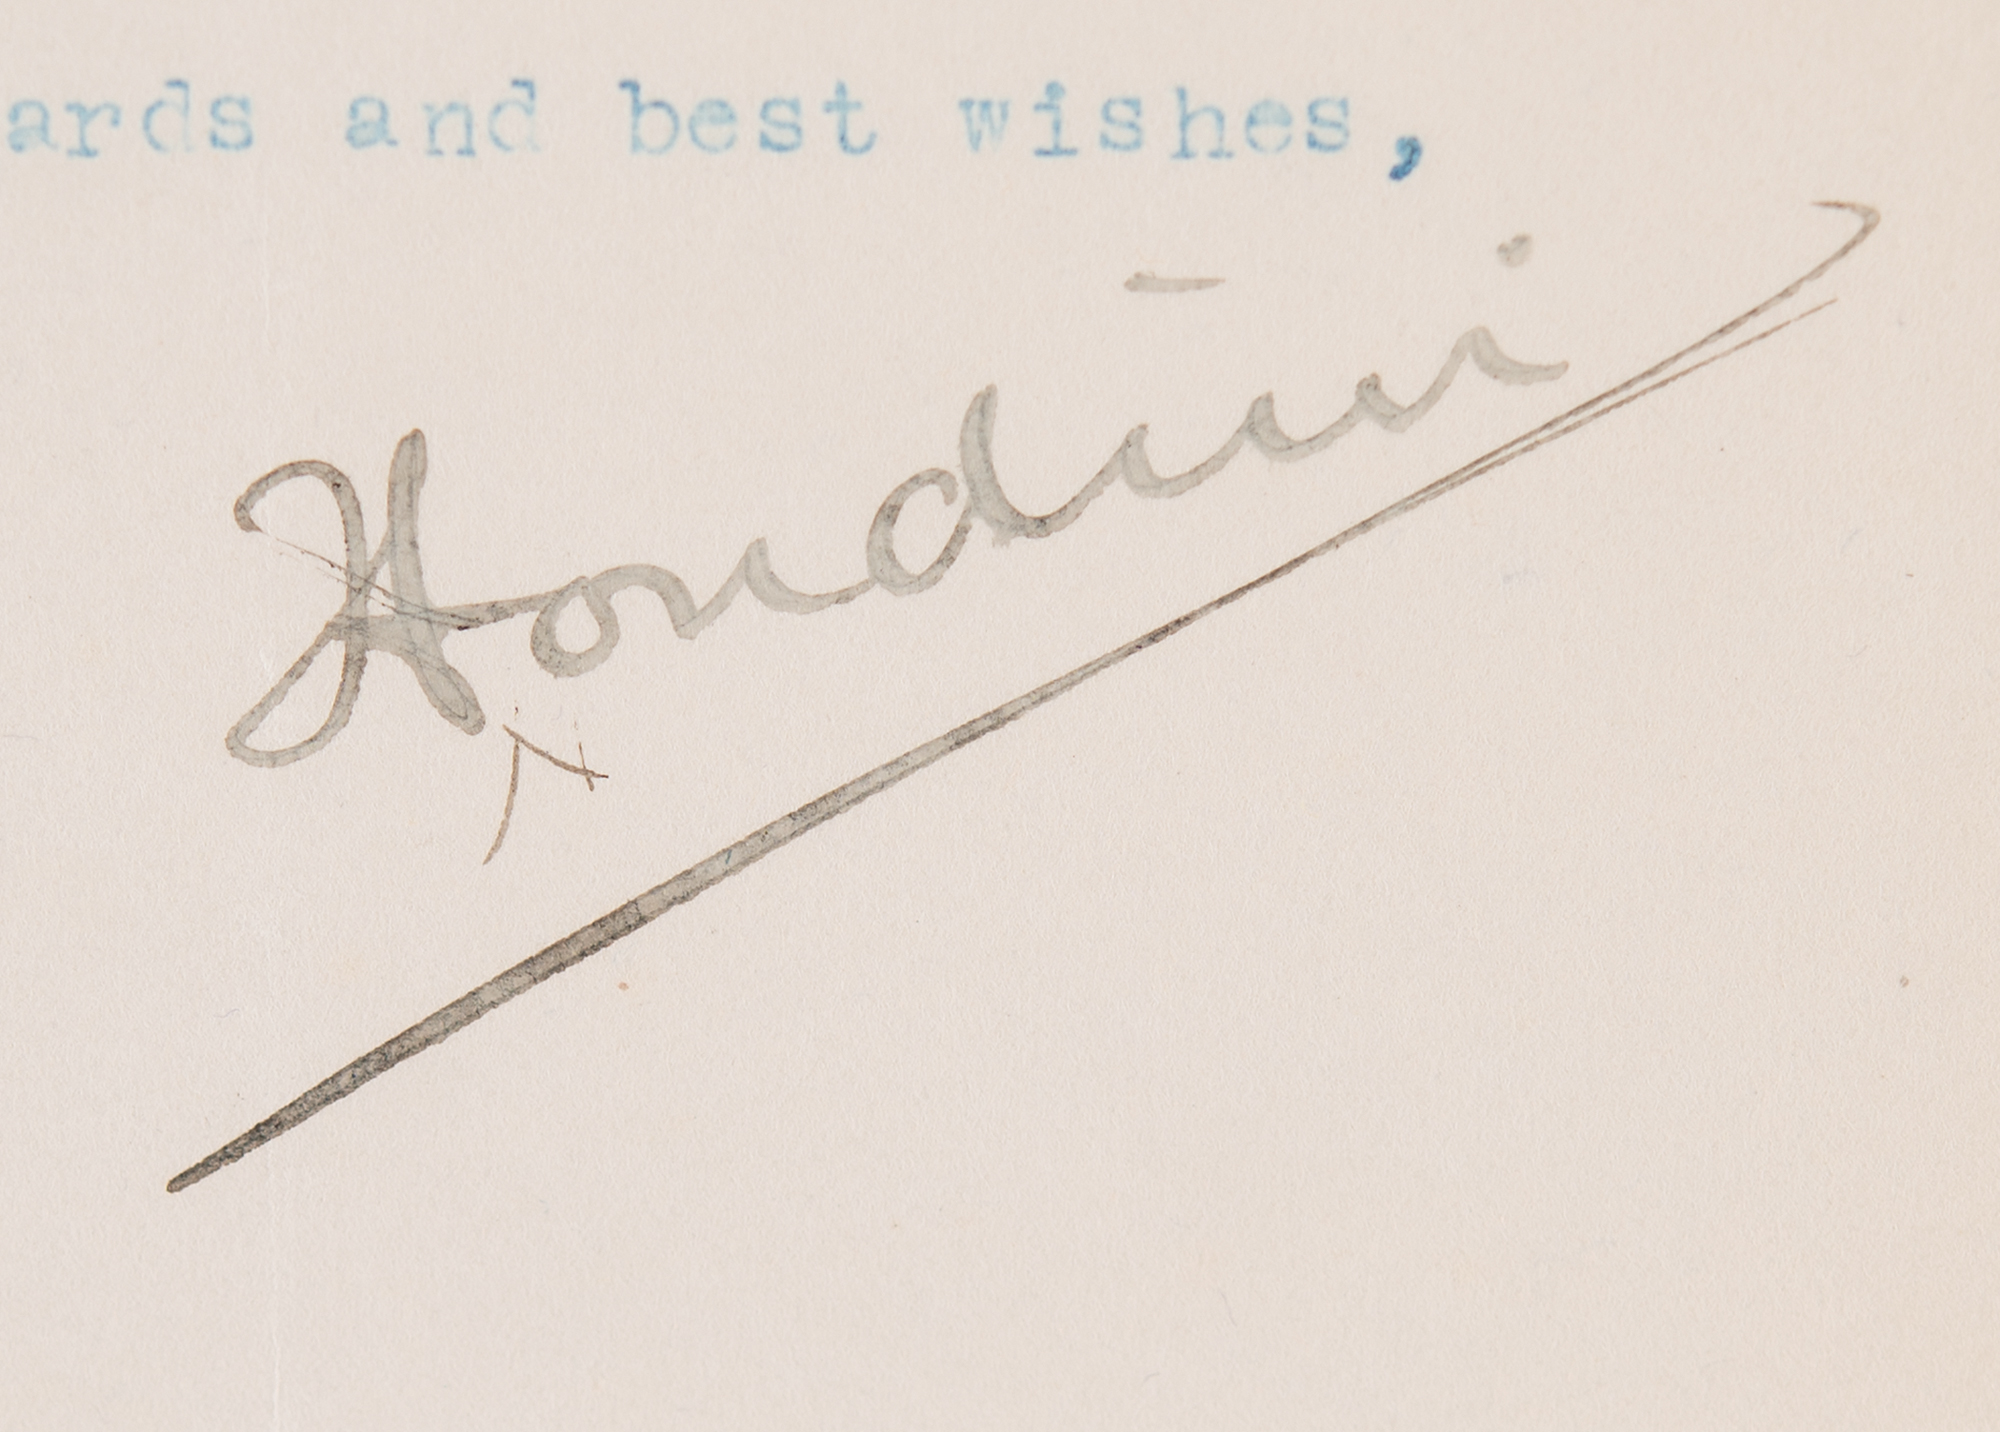 ards and best wishes,
Houdini